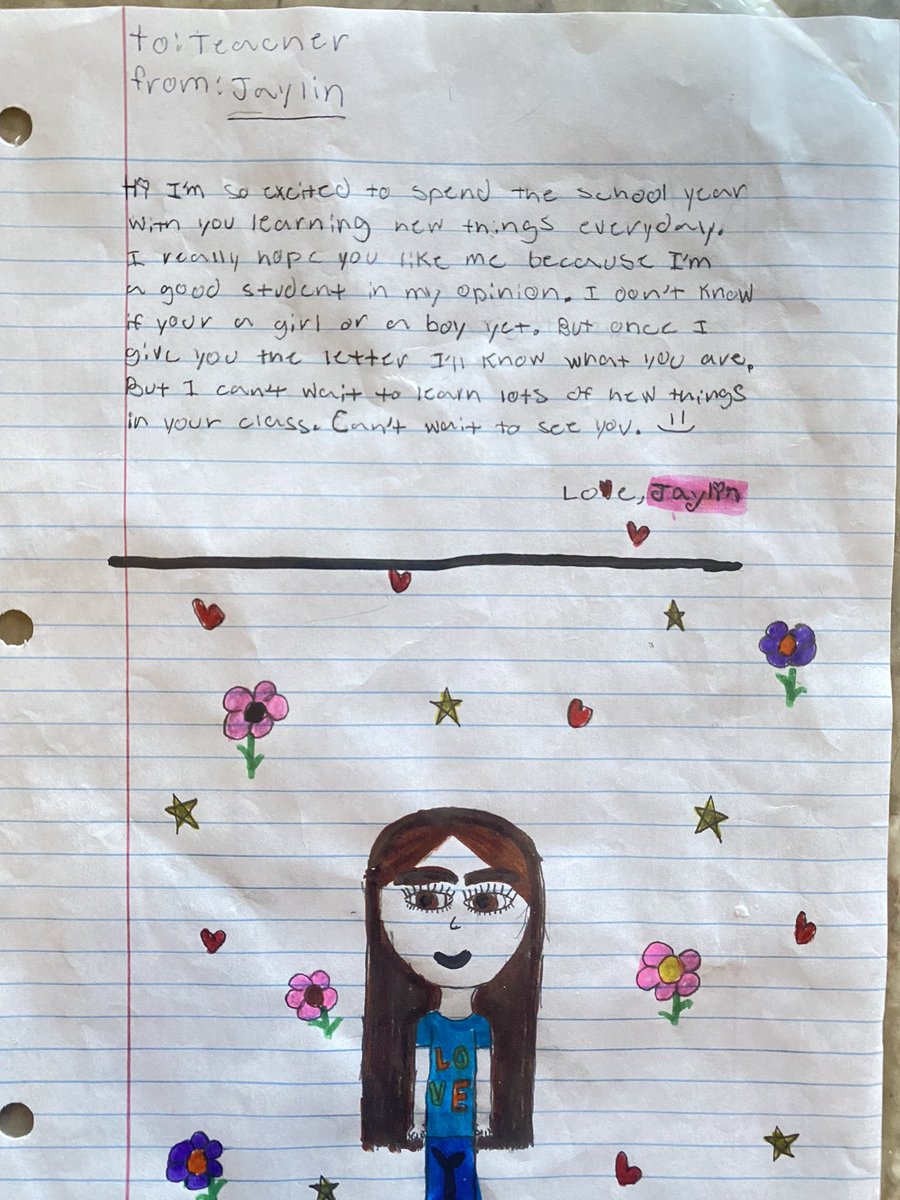 to: Teacher
from: Jaylin
Hi I'm so excited to spend the school year
with you learning new things everyday.
I really hope you like me because I'm
a good student in my opinion. I don't know
if your a girl or a boy yet. But once I
give you the letter I'll know what you are.
But I can't wait to learn lots of new things
in your class. Can't wait to see you.
Love, Jaylin
LO
VE